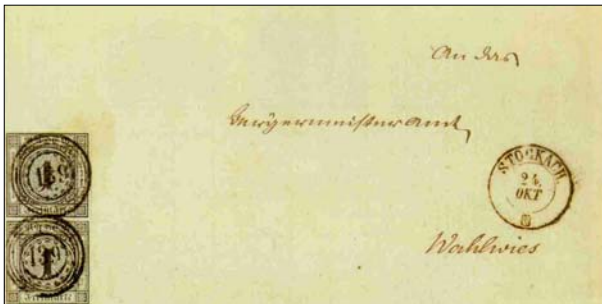 An das
Bürgermeisteramt
STOCKACH
24.
OKT
Wahlwies
139
1
139
1